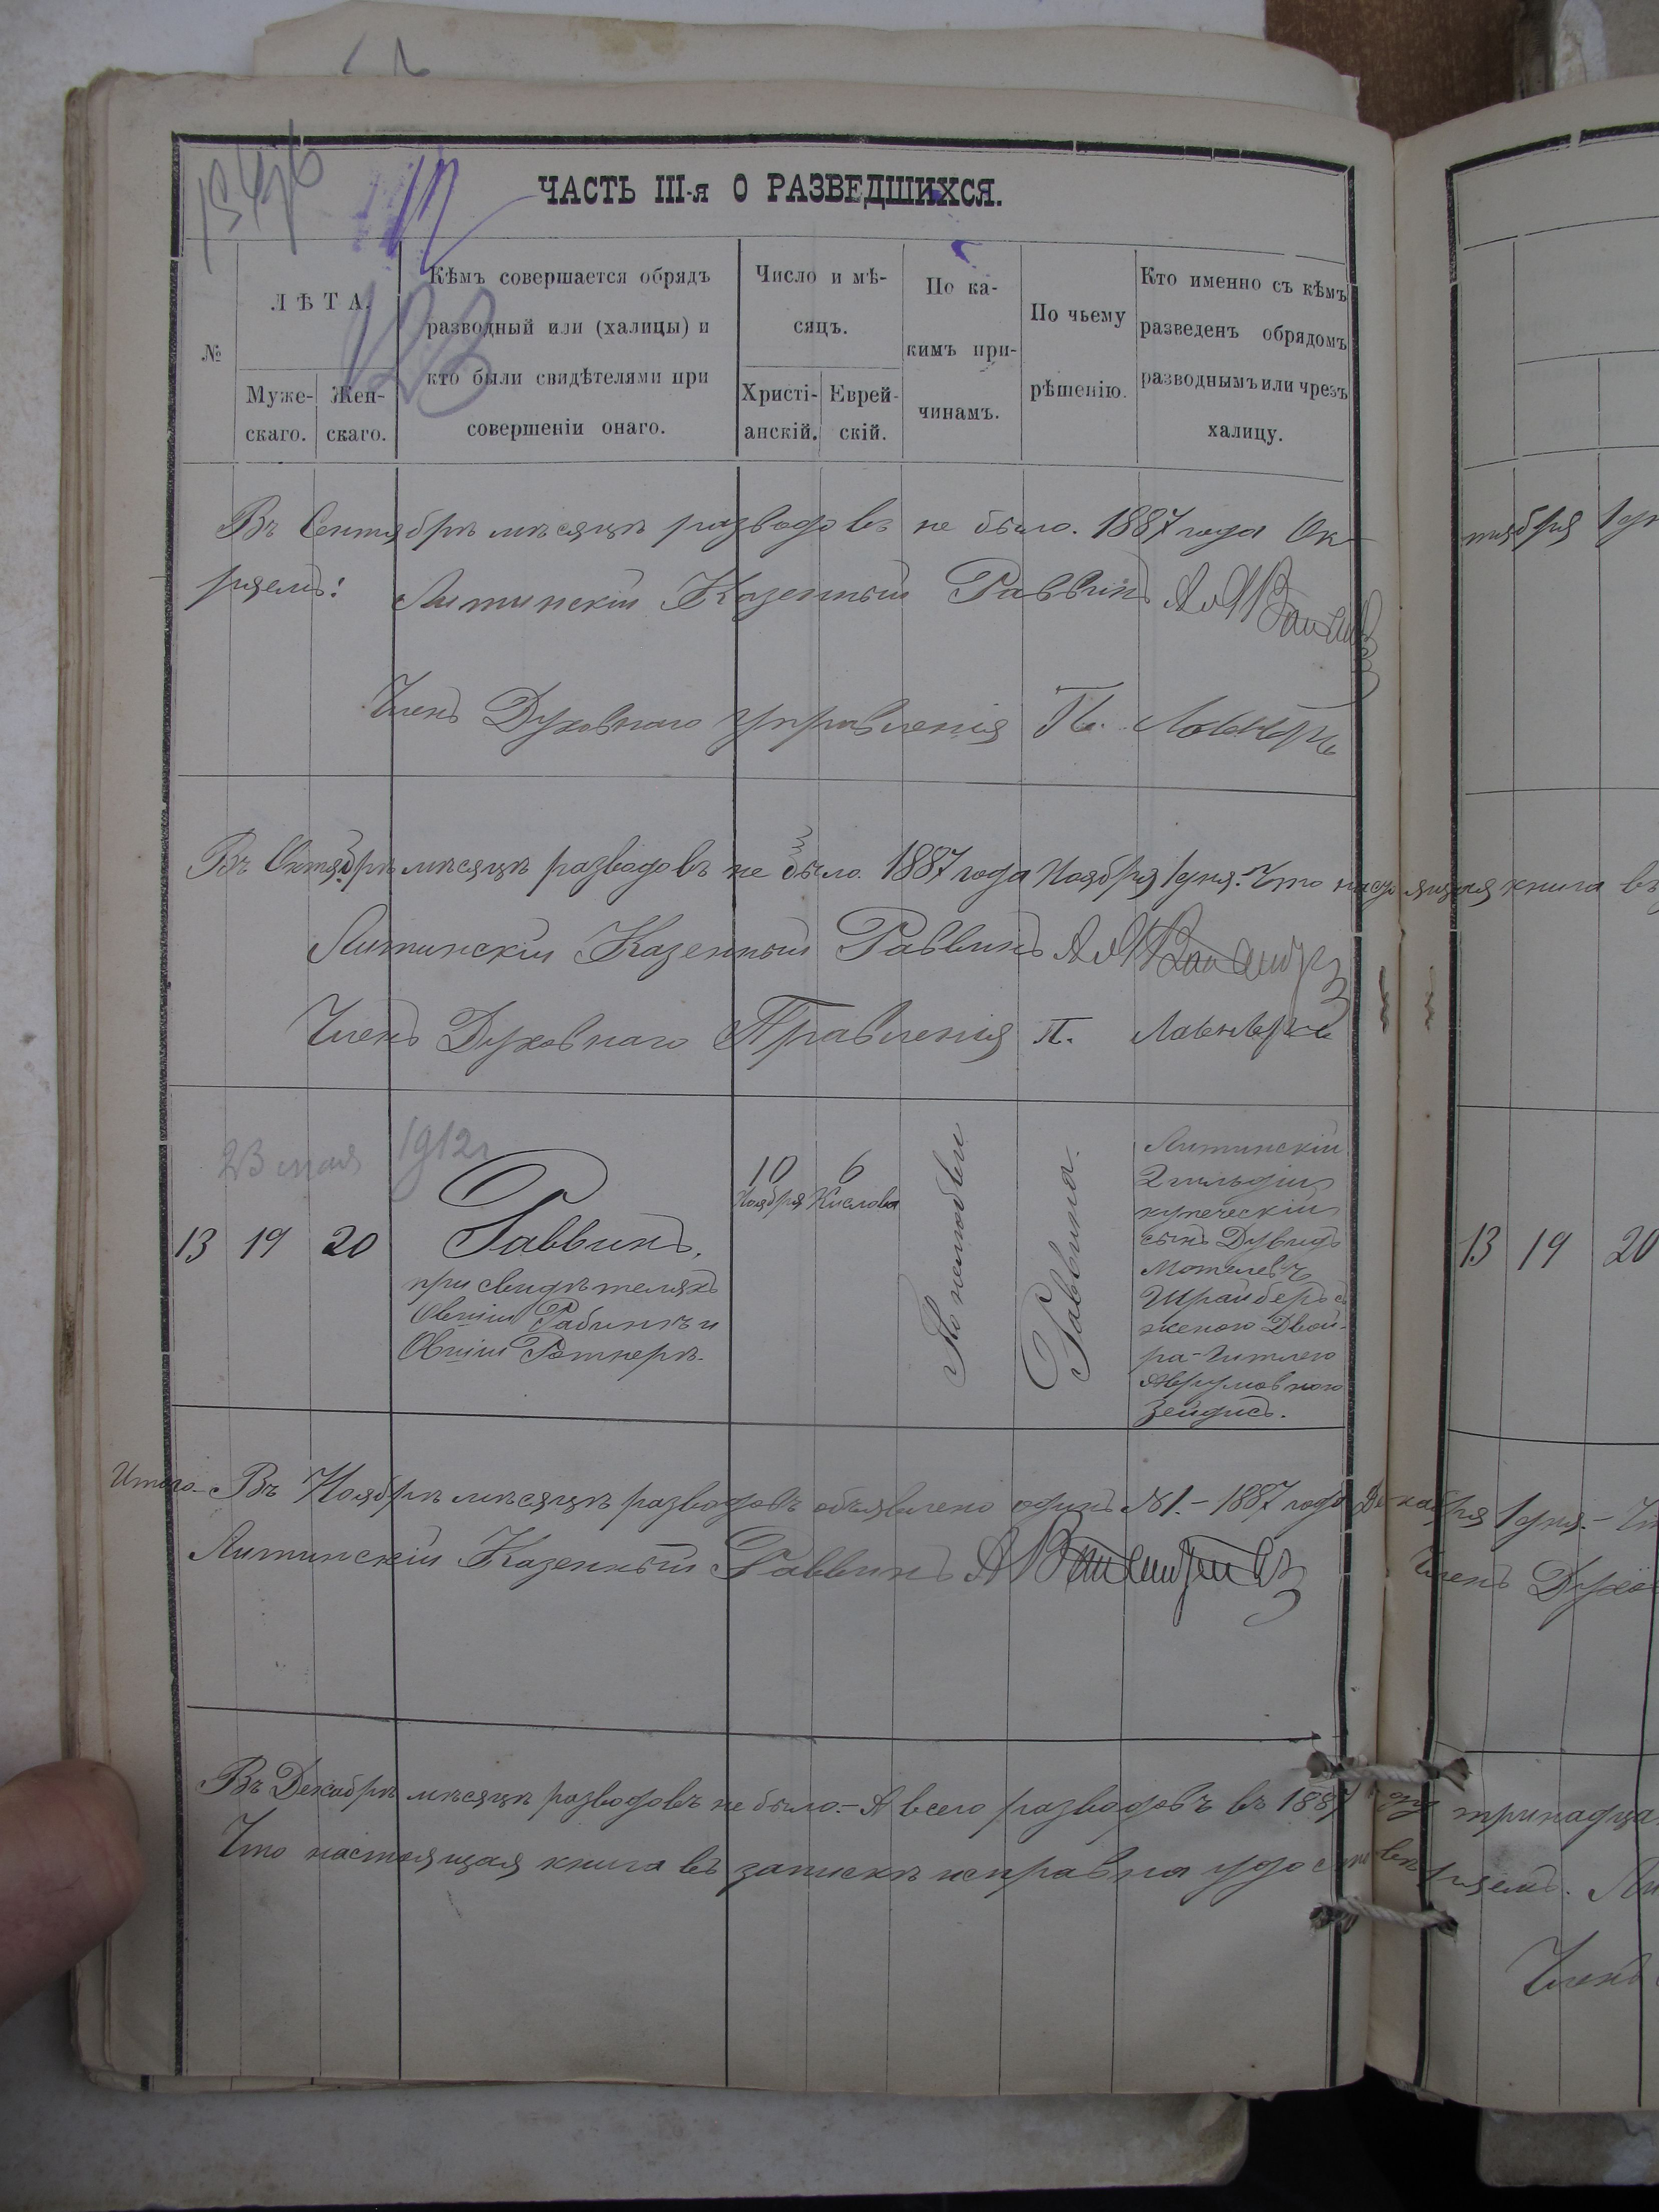 ЧАСТЬ III-я О РАЗВЕДШИХСЯ.
№
ЛѢТА.
Муже-
скаго.
Жен-
скаго.
Кѣмъ совершается обрядъ
разводный или (халицы) и
кто были свидѣтелями при
совершеніи онаго.
Число и мѣ-
сяцъ.
Христі-
анскій.
Еврей-
скій.
По ка-
кимъ при-
чинамъ.
По чьему
рѣшенію.
Кто именно съ кѣмъ
разведенъ обрядомъ
разводнымъ или чрезъ
халицу.
Въ Сентябрѣ мѣсяцѣ разводовъ не было. 1887 года Ок-
тября 1 дн
ряемъ:
Литинскій Казенный Раввинъ
Членъ Духовнаго управленія П.
Въ Октябрѣ мѣсяцѣ разводовъ не было 1887 года Ноября 1 дня. Что настоящая книга въ
Литинскій Казенный Раввинъ
Членъ Духовнаго Правленія П.
23 мая 1912
13 19 20
Раввинъ.
при свидѣтеляхъ
Овшіи Рабинѣ и
Овшіи Ротнерѣ.
10 6
Ноября Кислова
По нелюбви
Раввина.
Литинскій
2 гильдіи
купеческій
сынъ Дувидъ
Мотелевъ
Шрайберъ съ
женою Двой-
ра-Гитлею
Аврумовною
Зейдисъ.
13 19 20
Итого Въ Ноябрѣ мѣсяцѣ разводовъ объявлено одинъ №1.- 1887 года Декабря 1 дня.-
Литинскій Казенный Раввинъ
Членъ Духо
Въ Декабрѣ мѣсяцѣ разводовъ не было.- А всего разводовъ въ 1887 году тринадца
Что настоящая книга въ запискѣ исправна удостовѣряемъ. Ли
Членъ